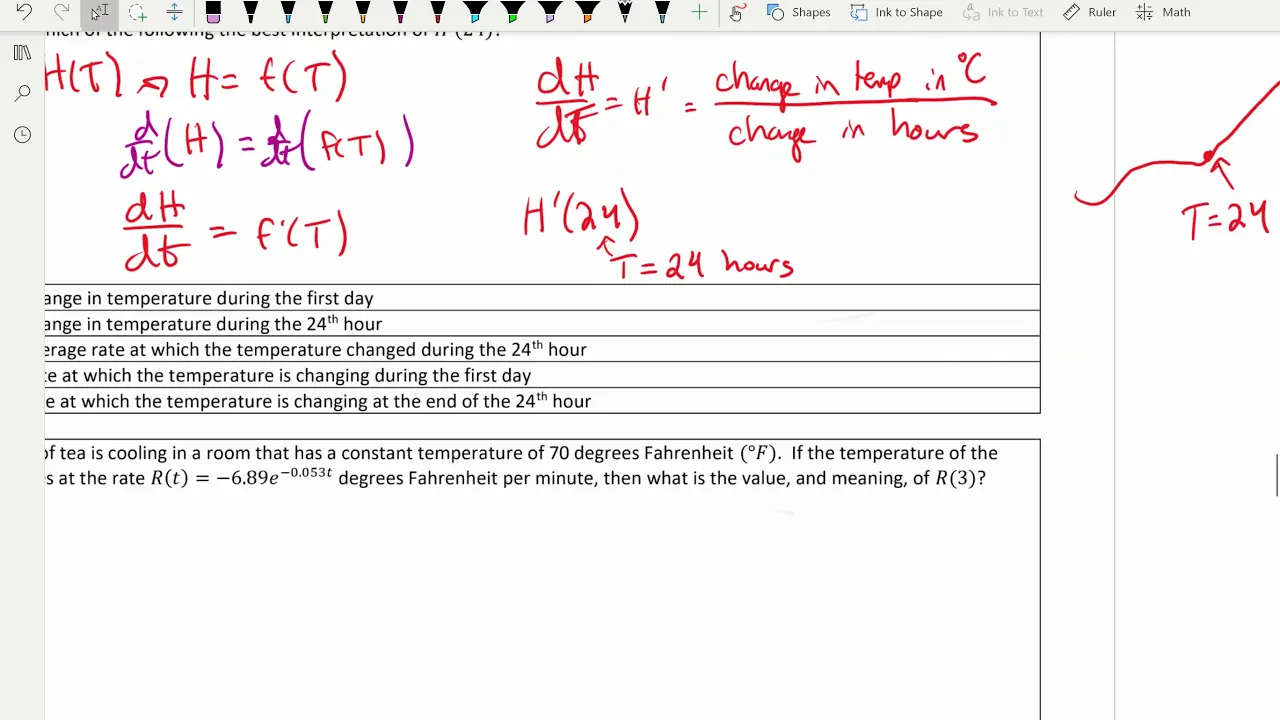 Shapes Ink to Shape Ink to Text Ruler Math
hich of the following the best interpretation of H'(24)?
H(T) → H = f(T)
d/dt (H) = d/dt (f(T))
dH/dt = f'(T)
dH/dt = H' = change in temp in °C / change in hours
H'(24)
T = 24 hours
T = 24
ange in temperature during the first day
ange in temperature during the 24th hour
erage rate at which the temperature changed during the 24th hour
te at which the temperature is changing during the first day
e at which the temperature is changing at the end of the 24th hour
of tea is cooling in a room that has a constant temperature of 70 degrees Fahrenheit (°F). If the temperature of the
s at the rate R(t) = −6.89e^−0.053t degrees Fahrenheit per minute, then what is the value, and meaning, of R(3)?